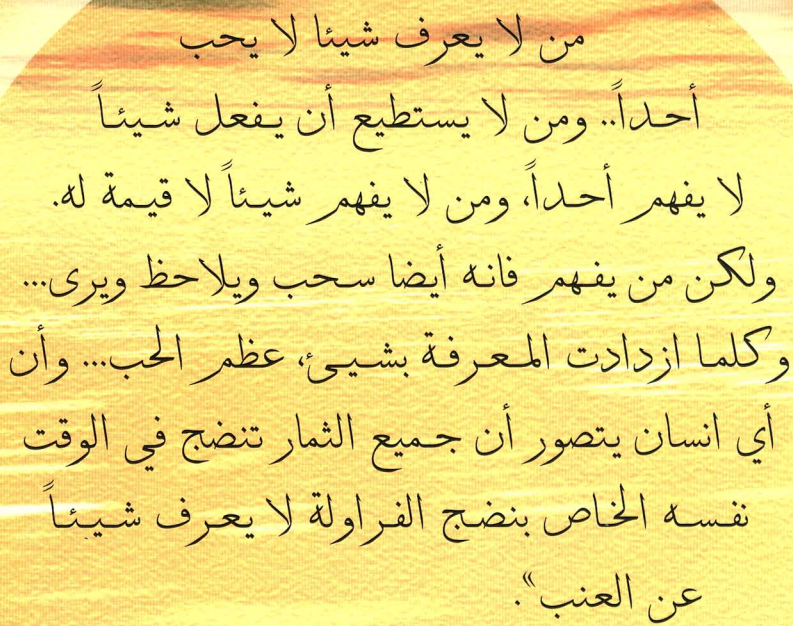 من لا يعرف شيئا لا يحب
أحداً.. ومن لا يستطيع أن يفعل شيئاً
لا يفهم أحداً، ومن لا يفهم شيئاً لا قيمة له.
ولكن من يفهم فانه أيضا سحب ويلاحظ ويرى...
وكلما ازدادت المعرفة بشيئ، عظم الحب... وأن
أي انسان يتصور أن جميع الثمار تنضج في الوقت
نفسه الخاص بنضج الفراولة لا يعرف شيئاً
عن العنب».